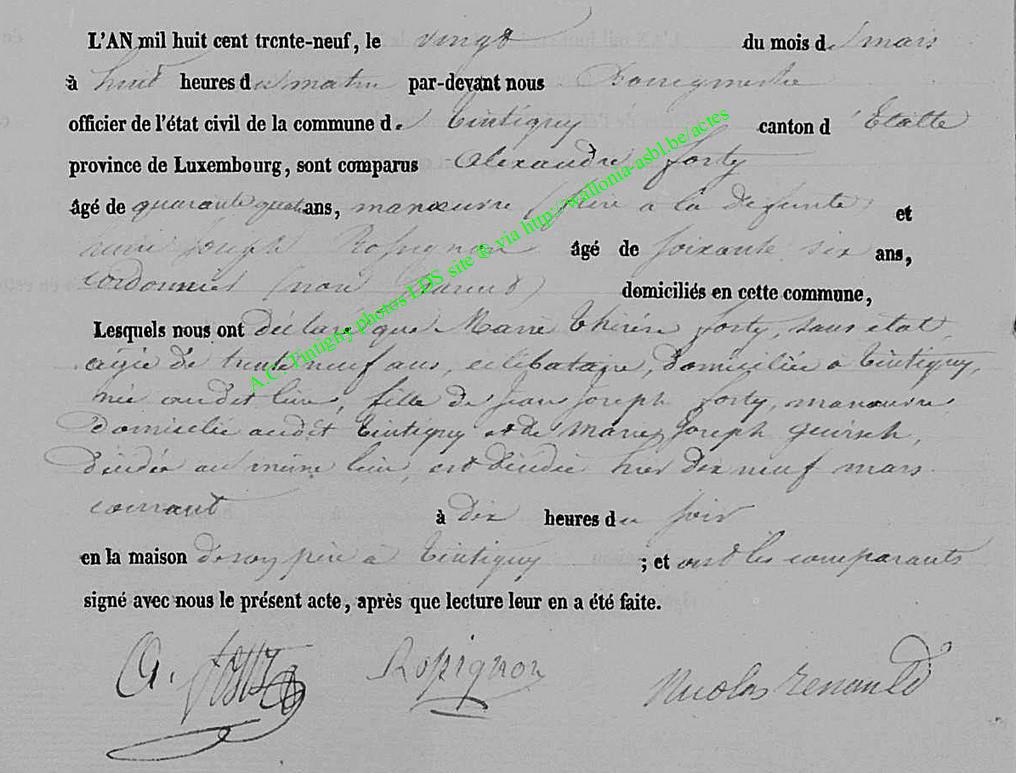 L'AN mil huit cent trente-neuf, le vingt du mois de mars
à huit heures du matin par-devant nous Bourgmestre
officier de l'état civil de la commune d. Tintigny canton d'Etalle
province de Luxembourg, sont comparus Alexandre forty
âgé de quarante quatre ans, manœuvre (frère à la défunte) et
joseph Rossignon âgé de soixante six ans,
cordonnier (non parent) domiciliés en cette commune,
Lesquels nous ont déclaré que Marie thérèse forty, sans état
agée de trente neuf ans, célibataire, domiciliée à Tintigny,
née audit lieu, fille de jean joseph forty, manœuvre
domicilié audit Tintigny et de Marie joseph
décédée au même lieu, est décédée hier dix neuf mars
courant à dix heures du soir
en la maison de son père à Tintigny ; et ont les comparants
signé avec nous le présent acte, après que lecture leur en a été faite.
A. Rossignon Nicolas Renauld
A.C. Tintigny photos LDS site ® via http://wallonia-asbl.be/actes